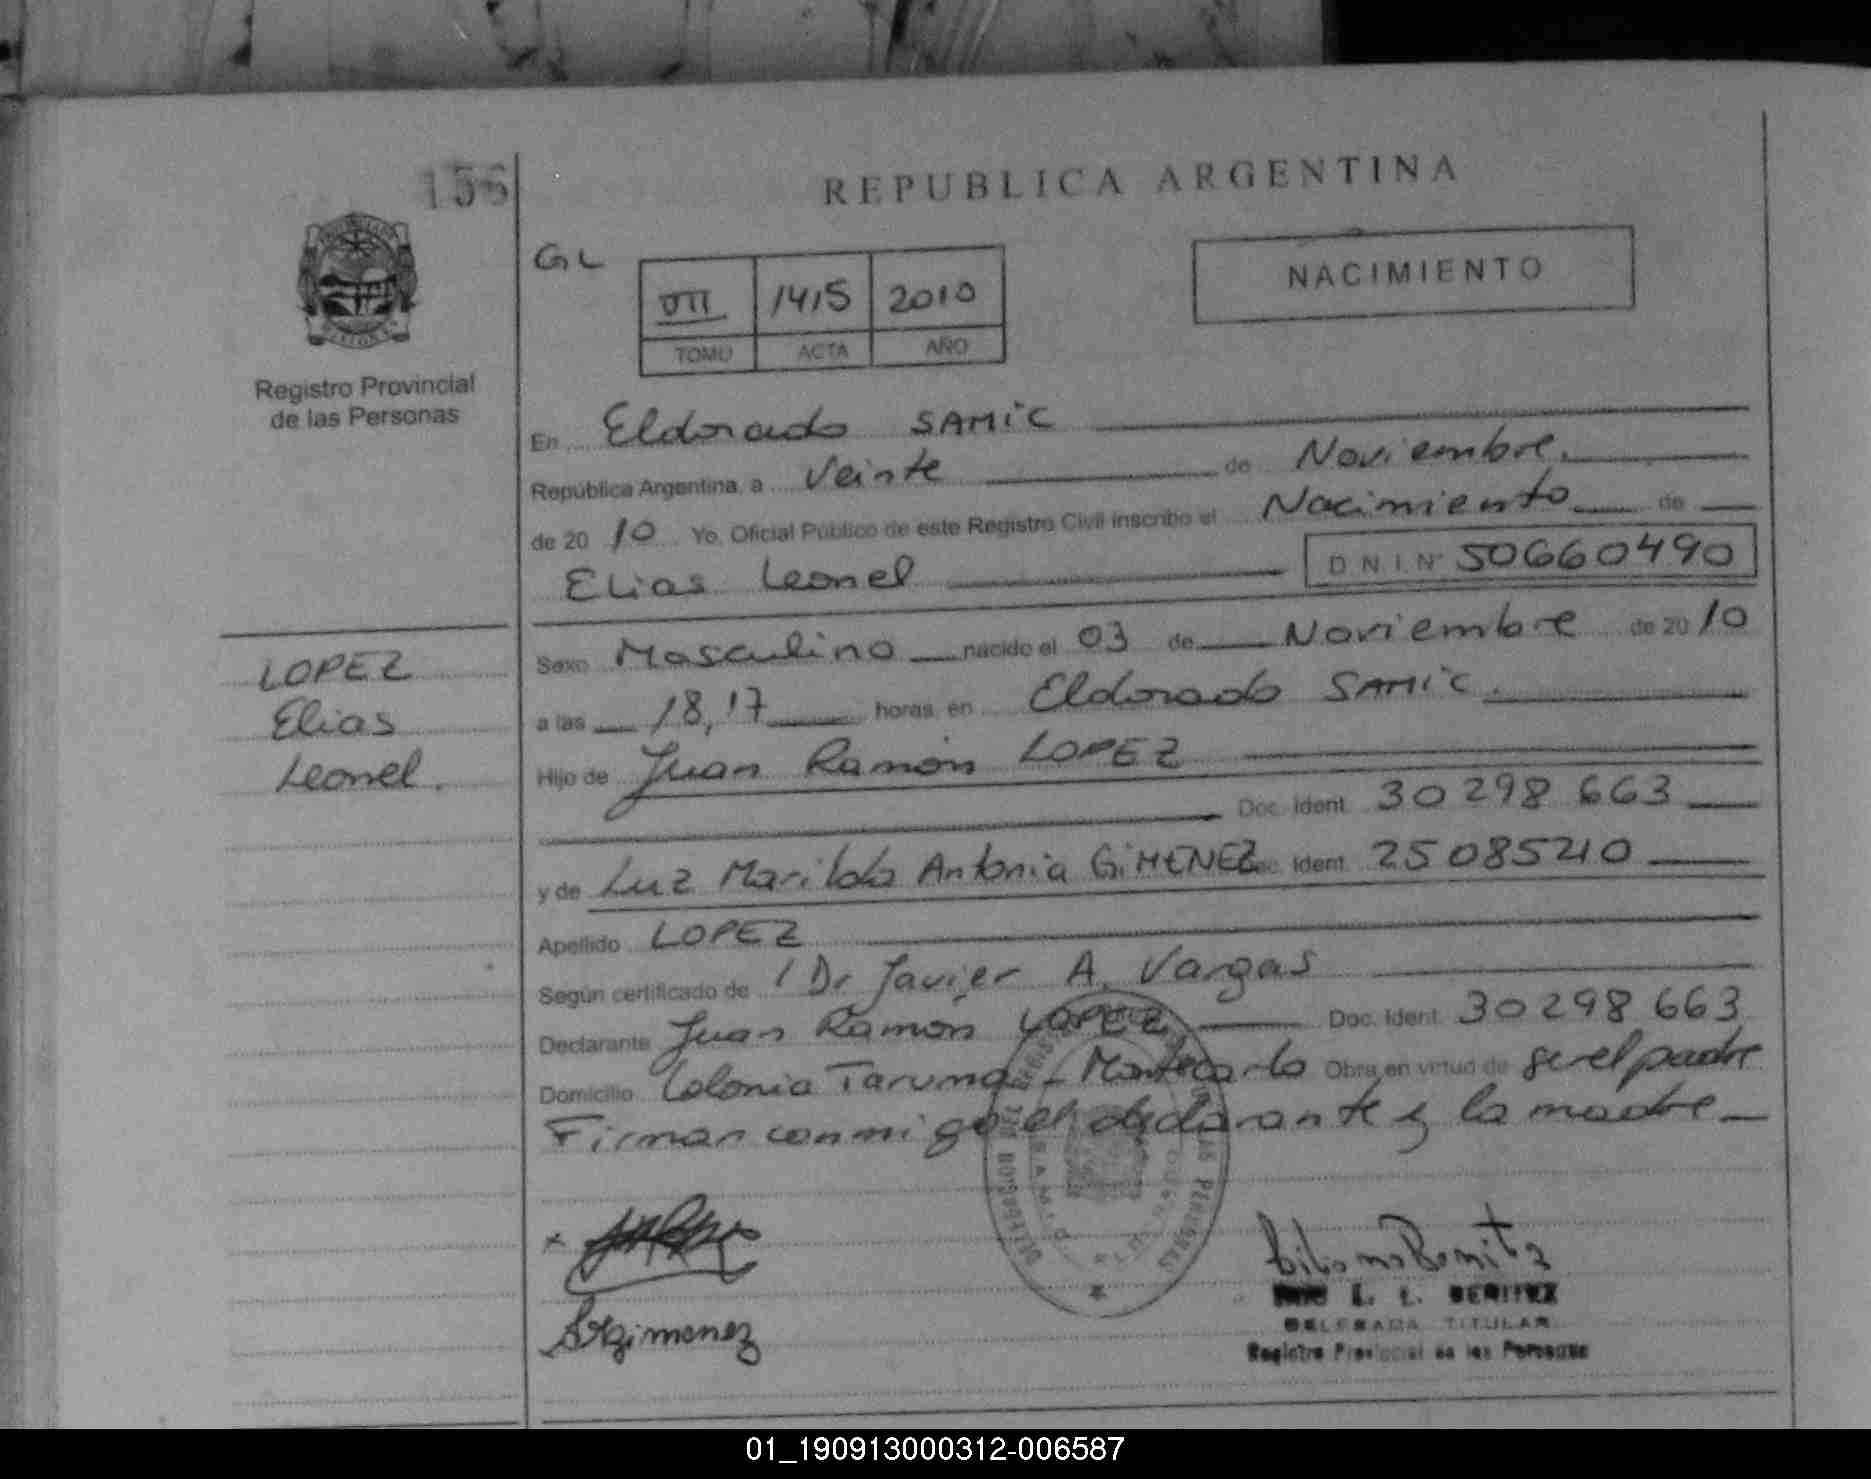 156
REPUBLICA ARGENTINA
GL
VII 1415 2010
TOMO ACTA AÑO
NACIMIENTO
Registro Provincial
de las Personas
En Eldorado SAMIC
República Argentina, a Veinte de Noviembre.
de 20 10 Yo, Oficial Público de este Registro Civil inscribo el Nacimiento de
Elias Leonel D.N.I.Nº 50660490
LOPEZ
Elias
Leonel.
Sexo Masculino nacido el 03 de Noviembre de 20 10
a las 18,17 horas, en Eldorado SAMIC.
Hijo de Juan Ramón LOPEZ
Doc. Ident. 30 298 663
y de Luz Marilda Antonia GIMENEZ Doc. Ident. 25 085 210
Apellido LOPEZ
Según certificado de Dr Javier A. Vargas
Declarante Juan Ramón LOPEZ Doc. Ident. 30 298 663
Domicilio Colonia Taruma - Montecarlo Obra en virtud de ser el padre
Firman conmigo el declarante y la madre
Gimenez
Benitez
L. L. BENITEZ
DELEGADA TITULAR
Registro Provincial de las Personas
01_190913000312-006587